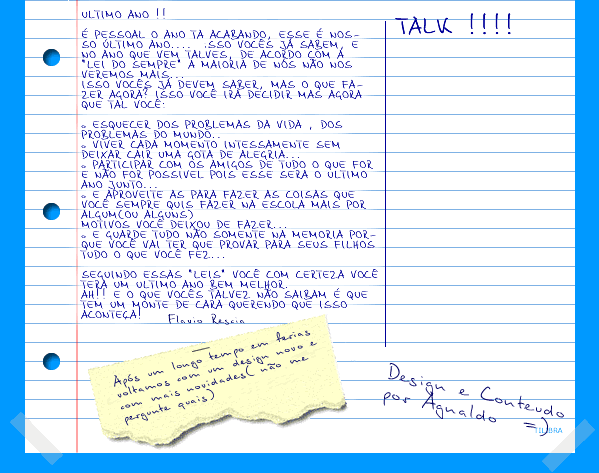 ULTIMO ANO !!
É PESSOAL O ANO TA ACABANDO, ESSE É NOS-
SO ÚLTIMO ANO.... .SSO VOCÊS JÁ SABEM, E
NO ANO QUE VEM TALVES, DE ACORDO COM A
"LEI DO SEMPRE" A MAIORIA DE NÓS NÃO NOS
VEREMOS MAIS...
ISSO VOCÊS JÁ DEVEM SABER, MAS O QUE FA-
ZER AGORA? ISSO VOCÊ IRÁ DECIDIR MAS AGORA
QUE TAL VOCÊ:
. ESQUECER DOS PROBLEMAS DA VIDA , DOS
PROBLEMAS DO MUNDO..
. VIVER CADA MOMENTO INTESSAMENTE SEM
DEIXAR CAIR UMA GOTA DE ALEGRIA...
. PARTICIPAR COM OS AMIGOS DE TUDO O QUE FOR
E NÃO FOR POSSIVEL POIS ESSE SERÁ O ULTIMO
ANO JUNTO...
. E APROVEITE AS PARA FAZER AS COISAS QUE
VOCÊ SEMPRE QUIS FAZER NA ESCOLA MAIS POR
ALGUM(OU ALGUNS)
MOTIVOS VOCÊ DEIXOU DE FAZER...
. E GUARDE TUDO NÃO SOMENTE NA MEMORIA POR-
QUE VOCÊ VAI TER QUE PROVAR PARA SEUS FILHOS
TUDO O QUE VOCÊ FEZ...
SEGUINDO ESSAS "LEIS" VOCÊ COM CERTEZA VOCÊ
TERÁ UM ULTIMO ANO BEM MELHOR.
AH!! E O QUE VOCÊS TALVEZ NÃO SAIBAM É QUE
TEM UM MONTE DE CARA QUERENDO QUE ISSO
ACONTEÇA!
Flavio
TALK !!!!
Após um longo tempo em ferias
voltamos com um design novo e
com mais novidades( não me
pergunte quais)
Design e Conteudo
por Agnaldo =)
TILIBRA